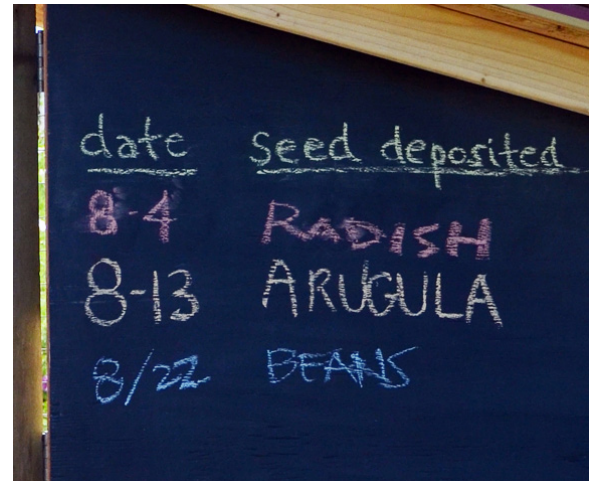 date seed deposited
8-4 RADISH
8-13 ARUGULA
8/22 BEANS